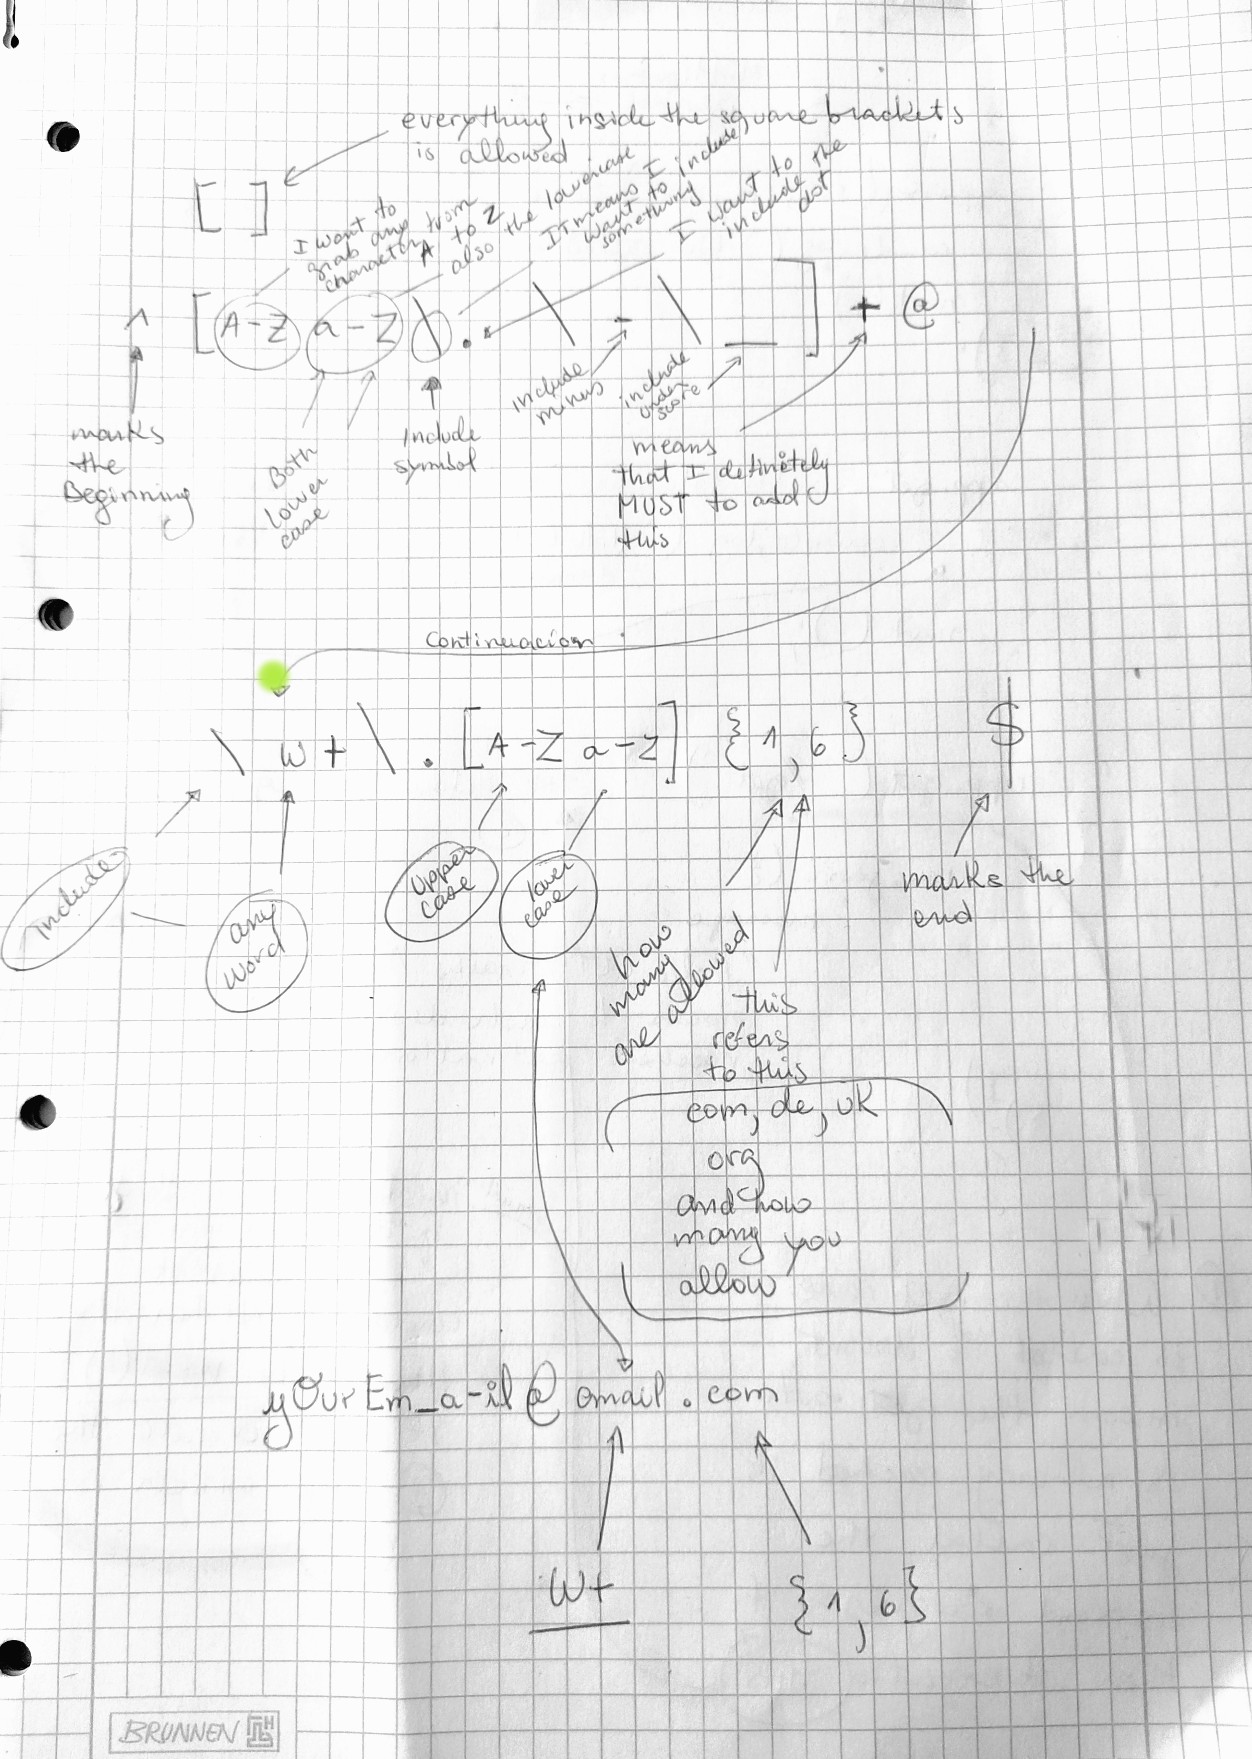 everything inside the square brackets
is allowed
[ ]
I want to
grab any
character from
A to Z
also the lowercase
It means I
want to include
something
I want to
include the
dot
^ [A-Z a-z \. \- \_] + @
marks
the
Beginning
Both
lower
case
Include
symbol
include
minus
include
under
score
means
that I definitely
MUST to add
this
Continuacion
\ w + \ . [A-Z a-z] {1,6} $
Include
any
word
Upper
case
lower
case
how
many
are allowed
marks the
end
this
refers
to this
com, de, uk
org
and how
many you
allow
yOurEm_a-il@ omail . com
w+
{1,6}
BRUNNEN